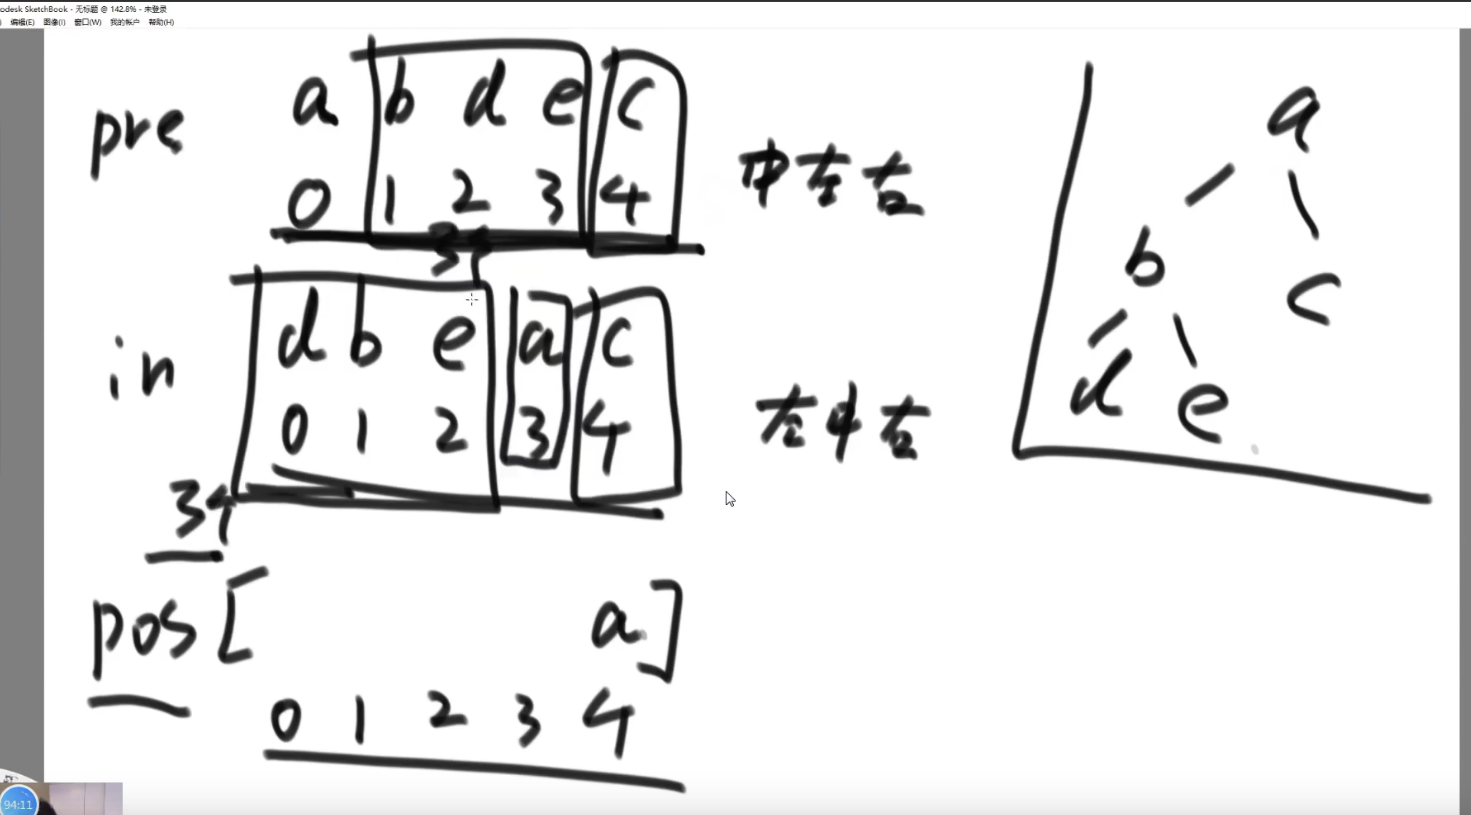 odesk SketchBook - 无标题 @ 142.8% - 未登录
编辑(E) 图像(I) 窗口(W) 我的帐户 帮助(H)
pre a b d e c 中左右
0 1 2 3 4
in d b e a c 左中右
0 1 2 3 4
34
pos [ a ]
0 1 2 3 4
a
b c
d e
94:11